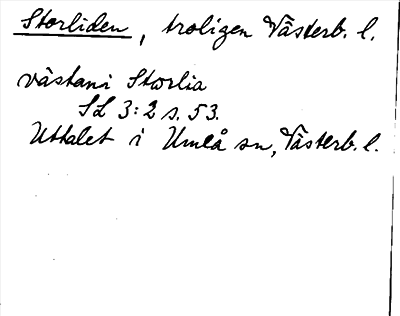 Storliden, troligen Västerb. l.
västani Storlia
SL 3:2 s. 53.
Uttalet i Umeå sn, Västerb. l.